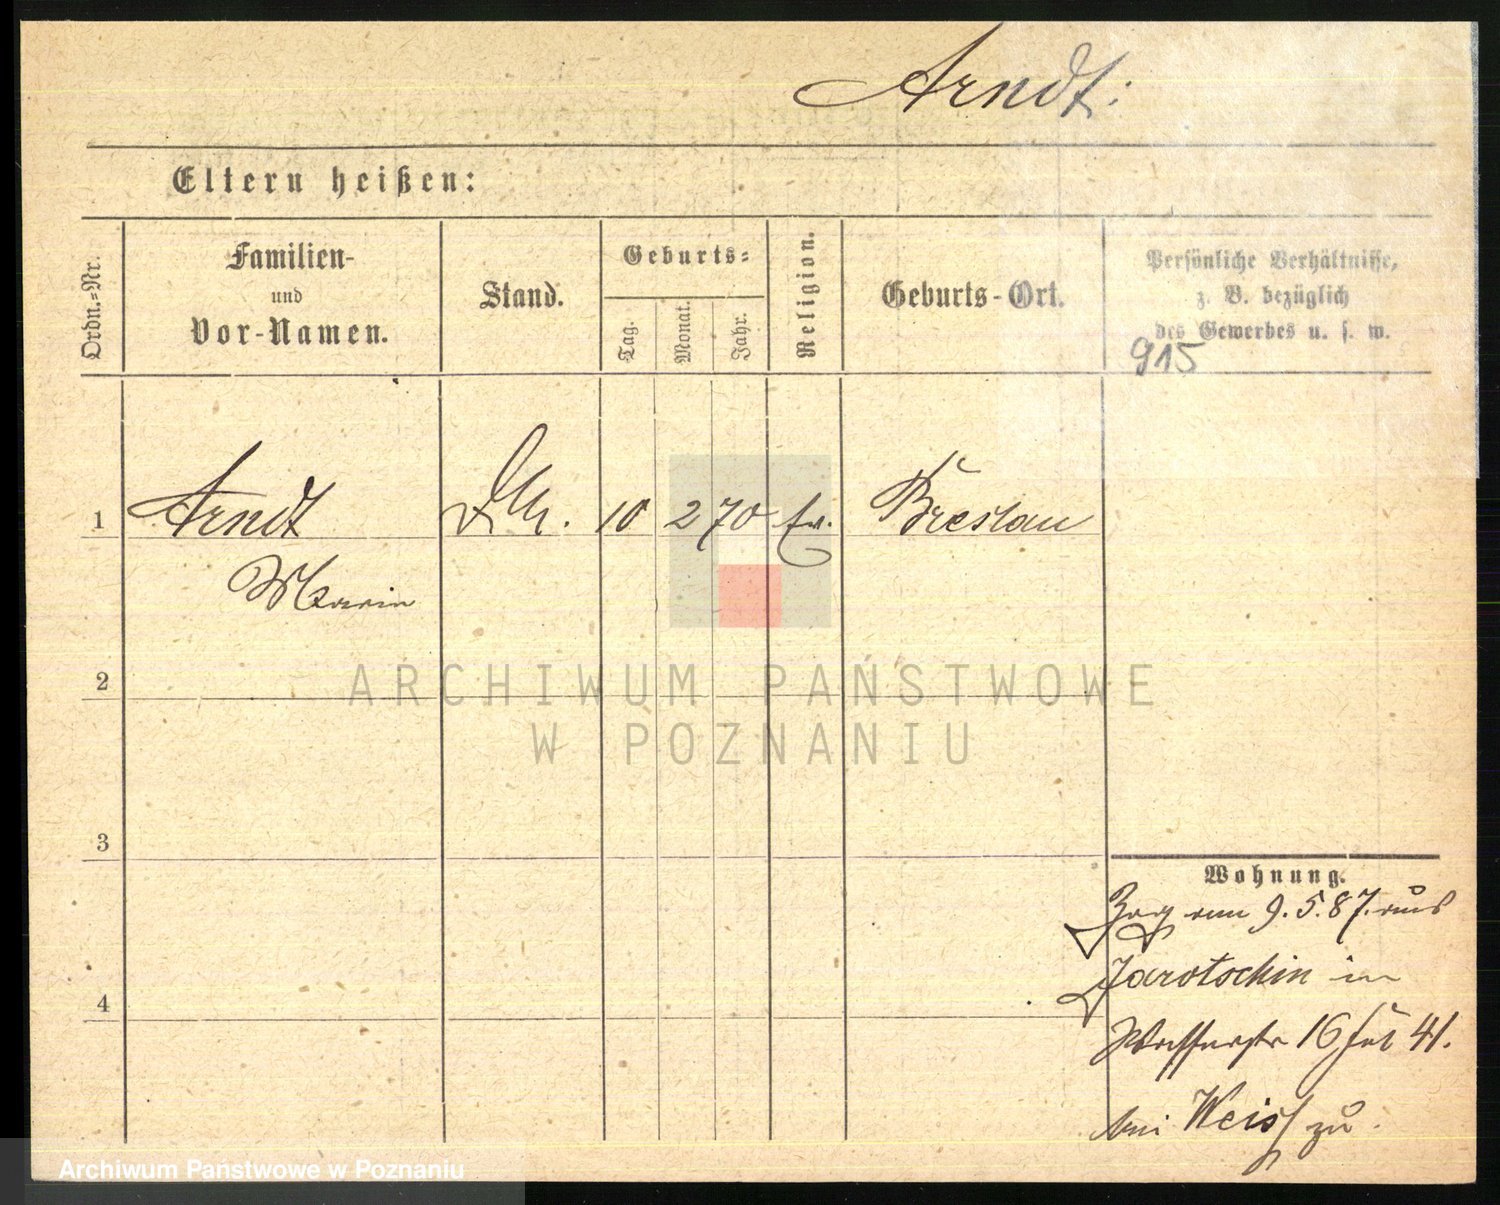 Arndt:
Eltern heißen:
Ordn.=Nr.
Familien-
und
Vor-Namen.
Stand.
Geburts=
Tag.
Monat.
Jahr.
Religion.
Geburts-Ort.
Persönliche Verhältnisse,
z. B. bezüglich
des Gewerbes u. s. w.
915
1 Arndt 10 2 70 ev. Breslau
Marie
2
ARCHIWUM PAŃSTWOWE
W POZNANIU
3
Wohnung.
Zog am 9. 5. 87. aus
Jarotschin in
Wasserstr 16 41.
bei Weiss zu.
4
Archiwum Państwowe w Poznaniu